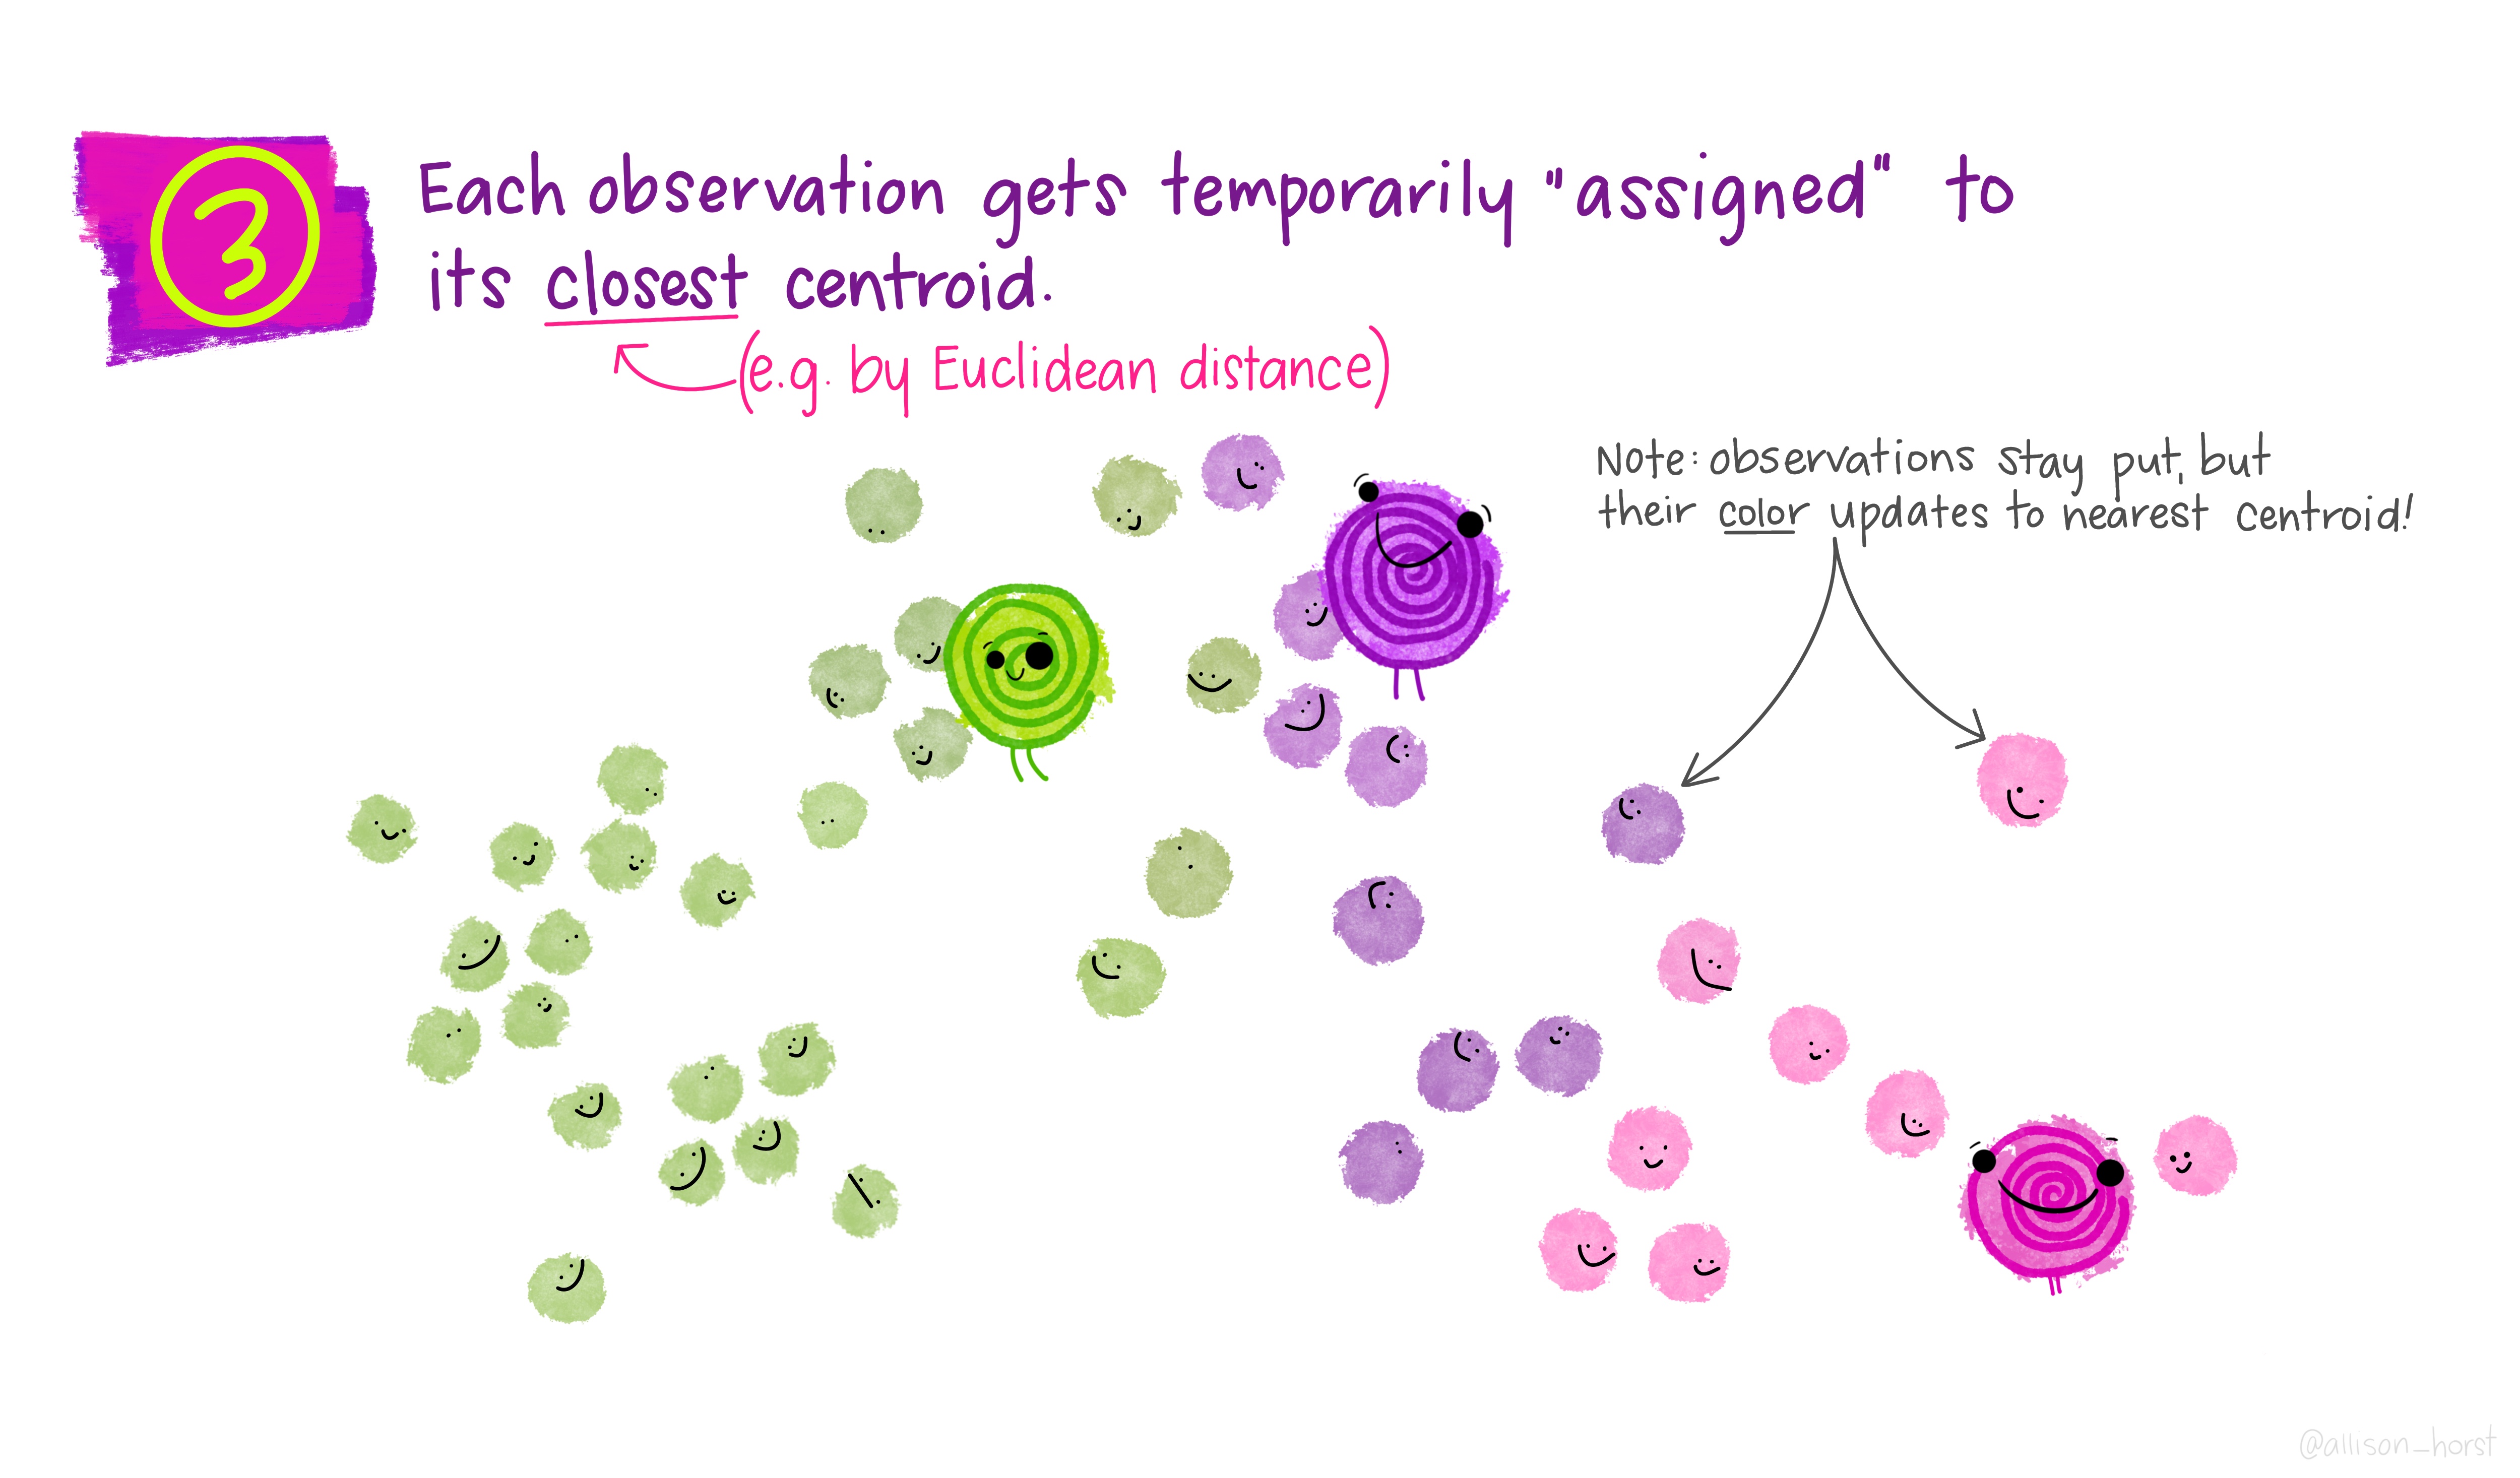 3
Each observation gets temporarily "assigned" to
its closest centroid.
(e.g. by Euclidean distance)
Note: observations stay put, but
their color updates to nearest centroid!
@allison_horst